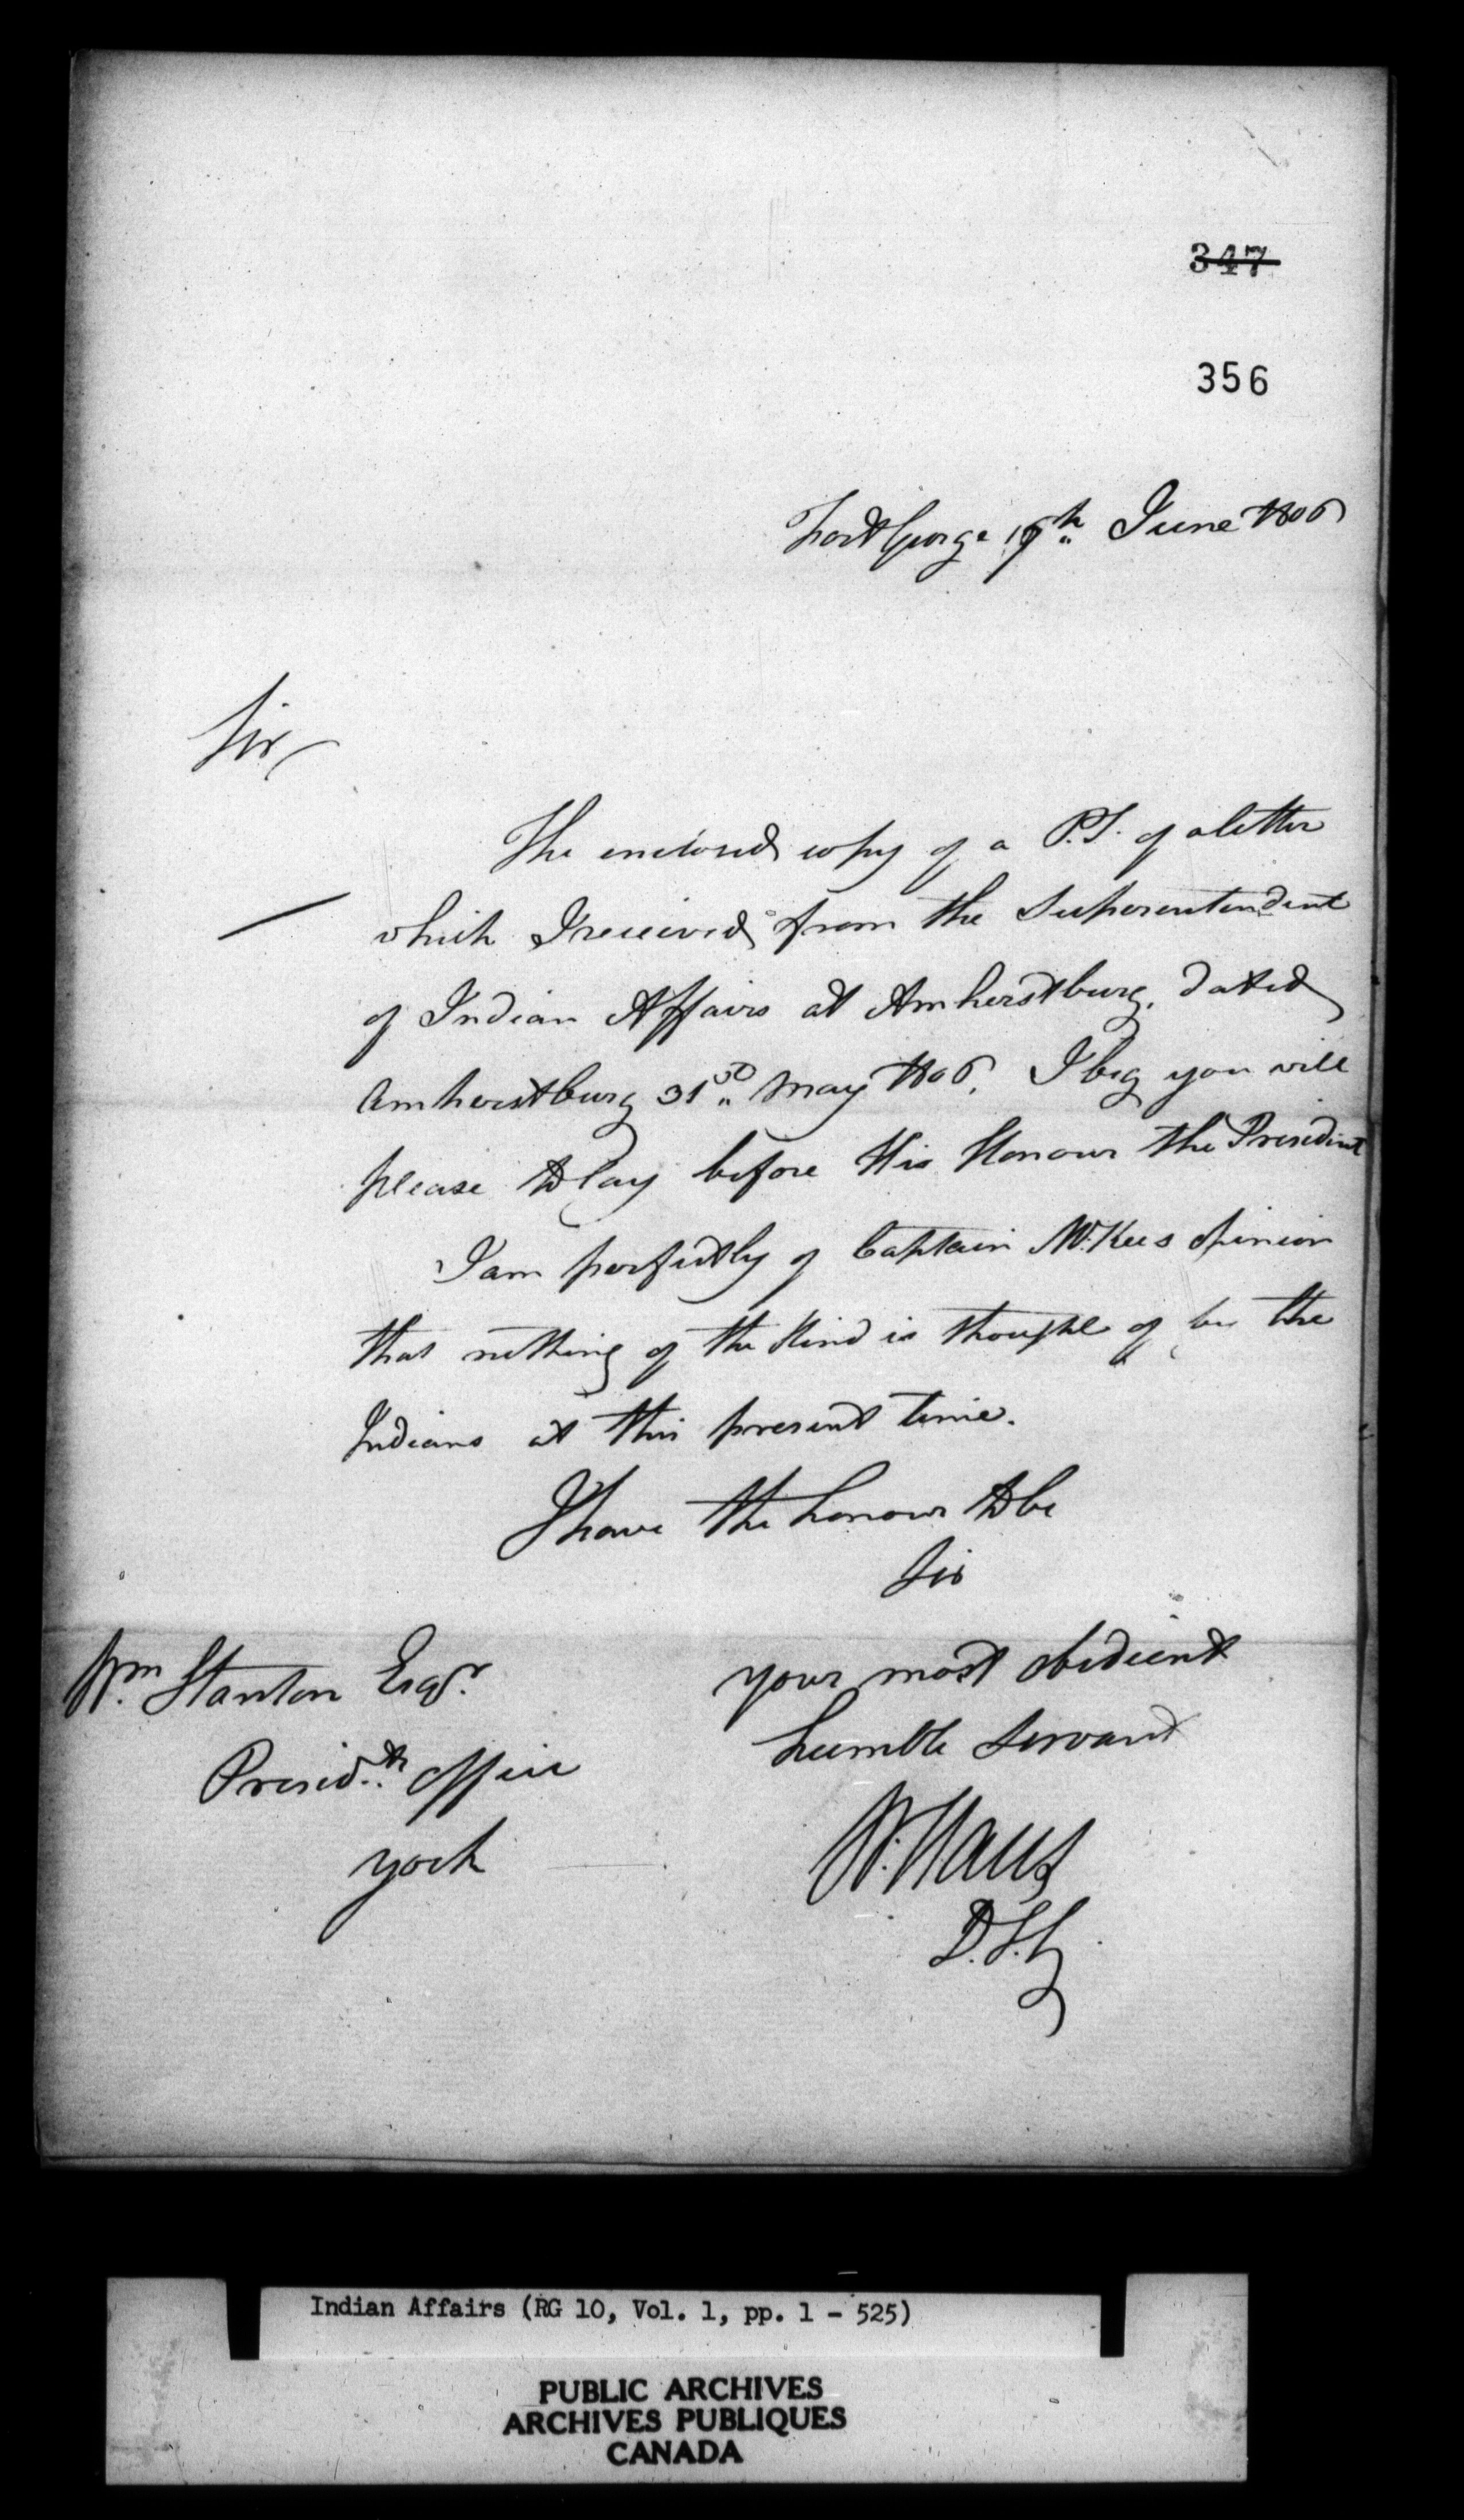 347
356
Fort George 19th June 1806
Sir
The enclosed copy of a P.S. of a letter
which I received from the Superentendent
of Indian Affairs at Amherstburg, dated
Amherstburg 31st May 1806, I beg you will
please to lay before His Honour the President
I am perfectly of Captain McKees opinion
that nothing of the Kind is thought of by the
Indians at this present time.
I have the honour to be
Sir
your most obedient
humble Servant
W. Claus
D.S.G.
Wm. Stanton Esqr.
Presidts. Office
York
Indian Affairs (RG 10, Vol. 1, pp. 1 - 525)
PUBLIC ARCHIVES
ARCHIVES PUBLIQUES
CANADA